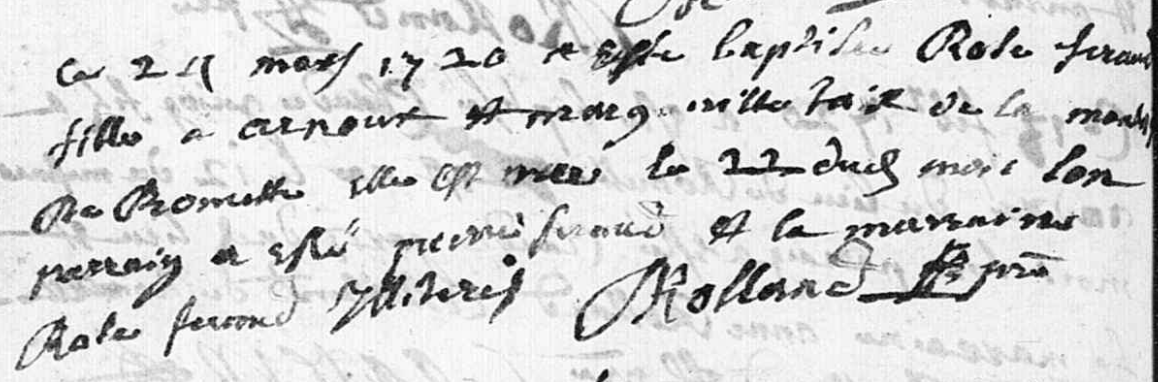 Ce 24 mars 1720 a esté baptisée Rose feraud
fille a arnoux et margueritte tait de la
De Promette elle est nee le 22 dud mois son
parrain a esté pierre feraud et la marraine
Rose feraud yllitérés Rolland ptre